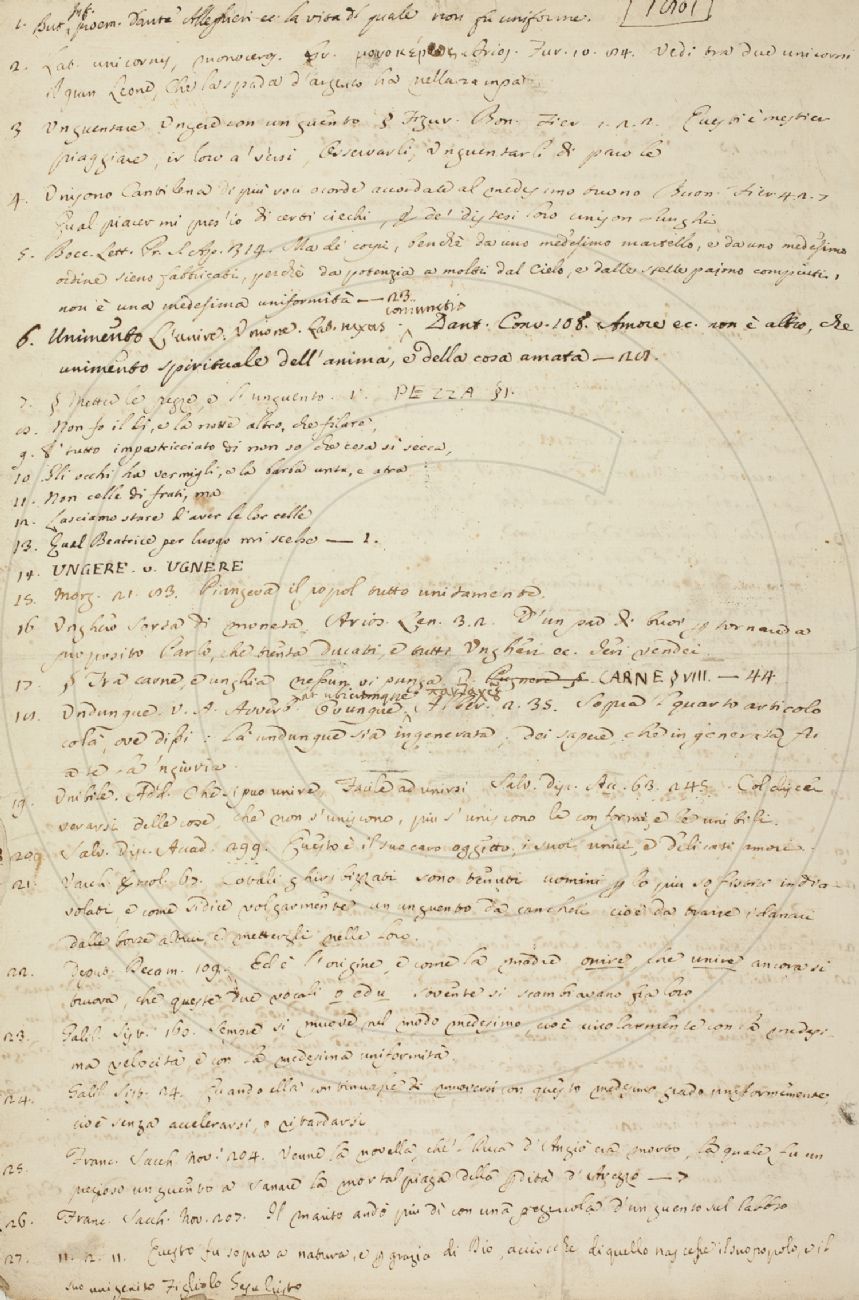 1. But. Inf. proem. Dante Alleghieri ec. la vita di quale non fu uniforme.
2. Lat. unicornis, monoceros. Gr. μονοκέρως Arios. Fur. 10. 84. Vedi tra due unicorni
il gran Leone, Che la spada d'argento ha nella zampa
3 Unguentare Ungere con unguento § Figur. Buon. Fier. 1. 2. 2. Questi è mestier
piaggiare, ir loro a' versi, Osservarli, Unguentarli di parole
4. Unisono Cantilena di più voci accordate al medesimo tuono Buon. Fier. 4. 2. 7
Qual piacer mi pres' io di certi ciechi, de' distesi loro unison lunghi
5. Bocc. Lett. Pr. S. Ap. 314. Ma de' corpi, benchè da uno medesimo martello, e da uno medesimo
ordine sieno fabbricati, perchè da potenzia a molti dal Cielo, e dalle stelle pajono compiuti,
non è una medesima uniformità — 23.
6. Unimento L'unire. Unione. Lat. nexus coniunctio Dant. Conv. 108. Amore ec. non è altro, che
unimento spirituale dell' anima, e della cosa amata — 28.
7. § Metter le pezze, e l' unguento. V. PEZZA §1.
8. Non fo il dì, e la notte altro, che filare,
9. E' tutto impastricciato di non so che cosa si secca,
10 Gli occhi ha vermigli, e la barba unta, e atra
11. Non celle di frati, ma
12. Lasciamo stare d'aver le lor celle
13. Qual Beatrice per luogo mi scelse — 1.
14. UNGERE. v. UGNERE
15. Morg. 21. 83. Piangeva il popol tutto unitamente.
16. Unghero Sorta di moneta. Arios. Len. 3. 2. D'un par di buoi per tornare a
proposito Parlo, che trenta Ducati, e tutti Ungheri ec. Ieri vendei
17. § Tra carne, e unghia nessun vi punga. V. CARNE §VIII. — 44
18. Undunque. V. A. Avverb. Ovunque. Lat. ubicumque. Alber. 2. 35. Sopra 'l quarto articolo
colà, ove dissi: Là undunque sia ingenerata, dei sapere, che ingenerata fu
a te la 'ngiuria.
19. Unibile. Add. Che si può unire, Facile ad unirsi Salv. Disc. Ac. 63. 245.
delle cose, che non s'uniscono, più s'uniscono le conformi, e le unibili.
20. Salv. Disc. Accad. 299. Questo è il suo caro oggetto, i suoi unici, e delicati amori.
21. Varch. Ercol. 67. Cotali ghiribizzati sono tenuti uomini per lo più sofistici indiavolati,
e come si dice volgarmente un unguento da cancheri cioè da trarre i danari
dalle borse altrui, e mettergli nelle loro.
22. Deput. Decam. 109. Ed è l'origine, e come la madre onire che unire ancora si
truova, che queste due vocali o ed u sovente si scambiavano fra loro
23. Galil. Sist. 160. Sempre si muove nel modo medesimo, cioè circolarmente con la medesima
velocità, e con la medesima uniformità.
24. Galil. Sist. 24. Quando ella continuasse di muoversi con questo medesimo grado uniformemente
cioè senza accelerarsi, o ritardarsi
25. Franc. Sacch. Nov. 204. Venne la novella, che 'l Duca d'Angiò era morto, la quale fu un
prezioso unguento a sanare la mortal piaga della perdita d'Arezzo — 7
26. Franc. Sacch. Nov. 207. Il marito andò più dì con una pezzuola d'unguento sul labbro
27. 11. 2. 11. Questo fu sopra a natura, e per grazia di Dio, acciocchè di quello nascesse il suo popolo, e il
suo unigenito Figliolo Gesù Cristo